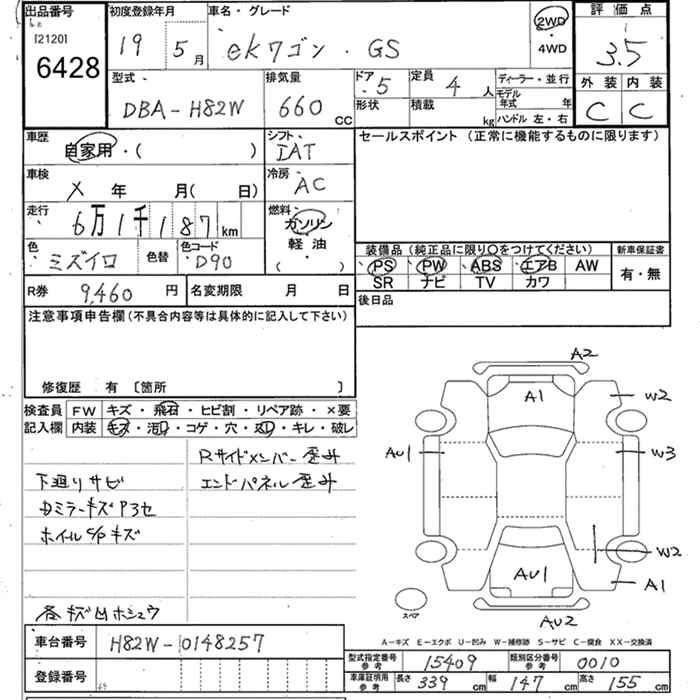 出品番号 初度登録年月 車名・グレード 評価点
121201
6428
19 5月 ekワゴン・GS 2WD・4WD 3.5
型式 排気量 ドア 定員 ディーラー・並行 外装 内装
DBA-H82W 660cc 5 4人 モデル年式 年 C C
形状 積載 kg ハンドル 左・右
車歴 シフト セールスポイント (正常に機能するものに限ります)
自家用・( ) IAT
車検 冷房
X 年 月( 日) AC
走行 燃料
6万1千187km ガソリン
色 色替 色コード 軽油
ミズイロ D90 ( ・ )
装備品 (純正品に限り○をつけてください) 新車保証書
PS PW ABS エアB AW 有・無
SR ナビ TV カワ
R券 9,460円 名変期限 月 日 後日品
注意事項申告欄(不具合内容等は具体的に記入して下さい)
修復歴 有 〔箇所 〕
検査員 FW キズ・飛石・ヒビ割・リペア跡・×要
記入欄 内装 キズ・汚れ・コゲ・穴・スレ・キレ・破レ
Rサイドメンバー歪み
下廻りサビ エンドパネル歪み
ホイルc/pキズ
各キズ凹ホシュウ
A2
A1 W2
AU1 W3
W2
AU1 A1
スペア AU2
A-キズ E-エクボ U-凹み W-補修跡 S-サビ C-腐食 XX-交換済
車台番号 H82W-0148257
登録番号
型式指定番号参考 15409 類別区分番号参考 0010
車庫証明用参考 長さ 339cm 幅 147cm 高さ 155cm